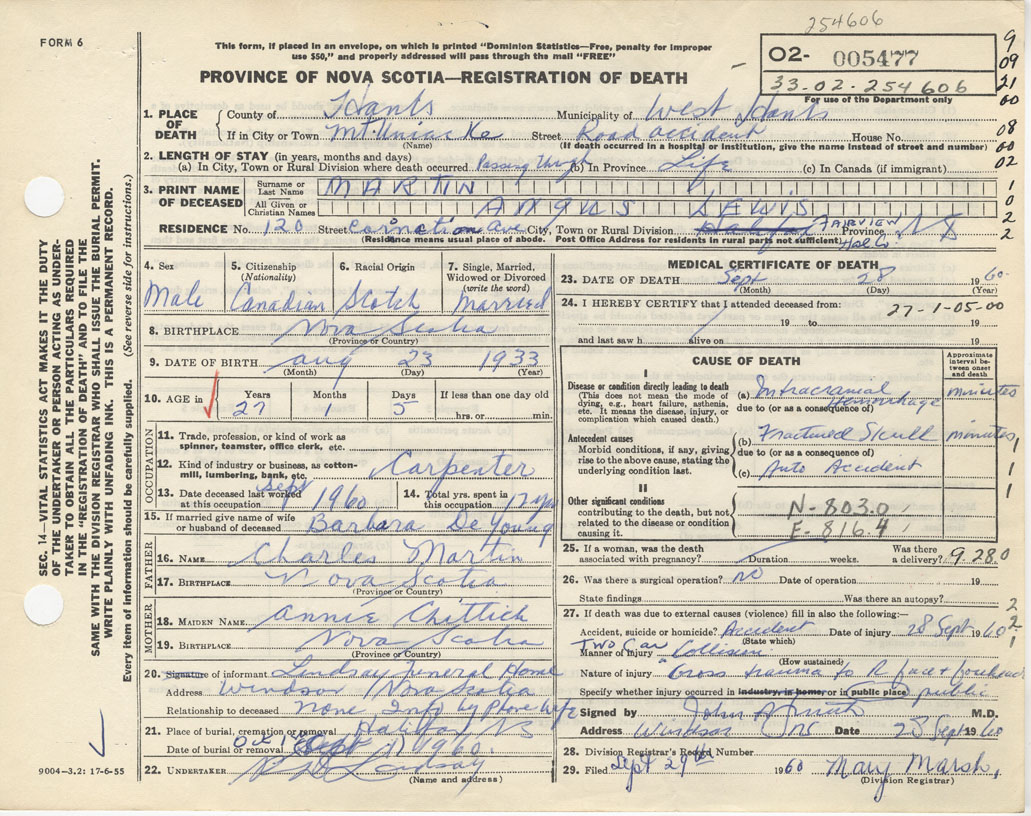 254606
FORM 6
This form, if placed in an envelope, on which is printed "Dominion Statistics—Free, penalty for improper
use $50," and properly addressed will pass through the mail "FREE"
02- 005477
33-02-254606
For use of the Department only
9
09
21
00
08
00
02
1
0
2
2
PROVINCE OF NOVA SCOTIA—REGISTRATION OF DEATH
1. PLACE OF DEATH
County of Hants Municipality of West Hants
If in City or Town Mt. Uniacke Street Road accident House No.
(Name) (If death occurred in a hospital or institution, give the name instead of street and number)
2. LENGTH OF STAY (in years, months and days)
(a) In City, Town or Rural Division where death occurred Passing through (b) In Province Life (c) In Canada (if immigrant)
3. PRINT NAME OF DECEASED
Surname or Last Name MARTIN
All Given or Christian Names ANGUS LEWIS
RESIDENCE No. 120 Street Carnation Ave City, Town or Rural Division Halifax FAIRVIEW Hal Co Province NS
(Residence means usual place of abode. Post Office Address for residents in rural parts not sufficient)
4. Sex Male
5. Citizenship (Nationality) Canadian
6. Racial Origin Scotch
7. Single, Married, Widowed or Divorced (write the word) Married
8. BIRTHPLACE Nova Scotia
(Province or Country)
9. DATE OF BIRTH Aug 23 1933
(Month) (Day) (Year)
10. AGE in Years 27 Months 1 Days 5 If less than one day old hrs. or min.
OCCUPATION
11. Trade, profession, or kind of work as spinner, teamster, office clerk, etc.
12. Kind of industry or business, as cotton-mill, lumbering, bank, etc. Carpenter
13. Date deceased last worked at this occupation Sept 1960
14. Total yrs. spent in this occupation 17 yrs
15. If married give name of wife or husband of deceased Barbara De Young
FATHER
16. NAME Charles Martin
17. BIRTHPLACE Nova Scotia
(Province or Country)
MOTHER
18. MAIDEN NAME Annie Chittick
19. BIRTHPLACE Nova Scotia
(Province or Country)
20. Signature of informant Lindsay Funeral Home
Address Windsor Nova Scotia
Relationship to deceased None Info by Phone Wife
21. Place of burial, cremation or removal Halifax NS
Date of burial or removal Oct 1 1960.
22. UNDERTAKER Lindsay
(Name and address)
MEDICAL CERTIFICATE OF DEATH
23. DATE OF DEATH Sept 28 1960
(Month) (Day) (Year)
24. I HEREBY CERTIFY that I attended deceased from: 27-1-05-00
19 to 19
and last saw h alive on 19
CAUSE OF DEATH
Approximate interval between onset and death
I
Disease or condition directly leading to death
(This does not mean the mode of dying, e.g., heart failure, asthenia, etc. It means the disease, injury, or complication which caused death.)
(a) Intracranial Hemorrhage minutes
due to (or as a consequence of)
Antecedent causes
Morbid conditions, if any, giving rise to the above cause, stating the underlying condition last.
(b) Fractured Skull minutes
due to (or as a consequence of)
(c) Auto Accident
1
1
1
1
II
Other significant conditions
contributing to the death, but not related to the disease or condition causing it.
N-803.0
E-816.4
25. If a woman, was the death associated with pregnancy? Duration weeks. Was there a delivery?
9 280
26. Was there a surgical operation? no Date of operation 19
State findings Was there an autopsy?
27. If death was due to external causes (violence) fill in also the following:—
2
2
1
Accident, suicide or homicide? Accident Date of injury 28 Sept 1960
(State which)
Manner of injury Two Car Collision
(How sustained)
Nature of injury Gross trauma to R face & forehead
Specify whether injury occurred in industry, in home, or in public place public
Signed by John A Smith M.D.
Address Windsor NS Date 28 Sept 1960
28. Division Registrar's Record Number
29. Filed Sept 29th 1960 Mary Marsh,
(Division Registrar)
SEC. 14—VITAL STATISTICS ACT MAKES IT THE DUTY
OF THE UNDERTAKER OR PERSON ACTING AS UNDER-
TAKER TO OBTAIN ALL THE PARTICULARS REQUIRED
IN THE "REGISTRATION OF DEATH" AND TO FILE THE
SAME WITH THE DIVISION REGISTRAR WHO SHALL ISSUE THE BURIAL PERMIT.
WRITE PLAINLY WITH UNFADING INK. THIS IS A PERMANENT RECORD.
Every item of information should be carefully supplied. (See reverse side for instructions.)
9004-3.2: 17-6-55